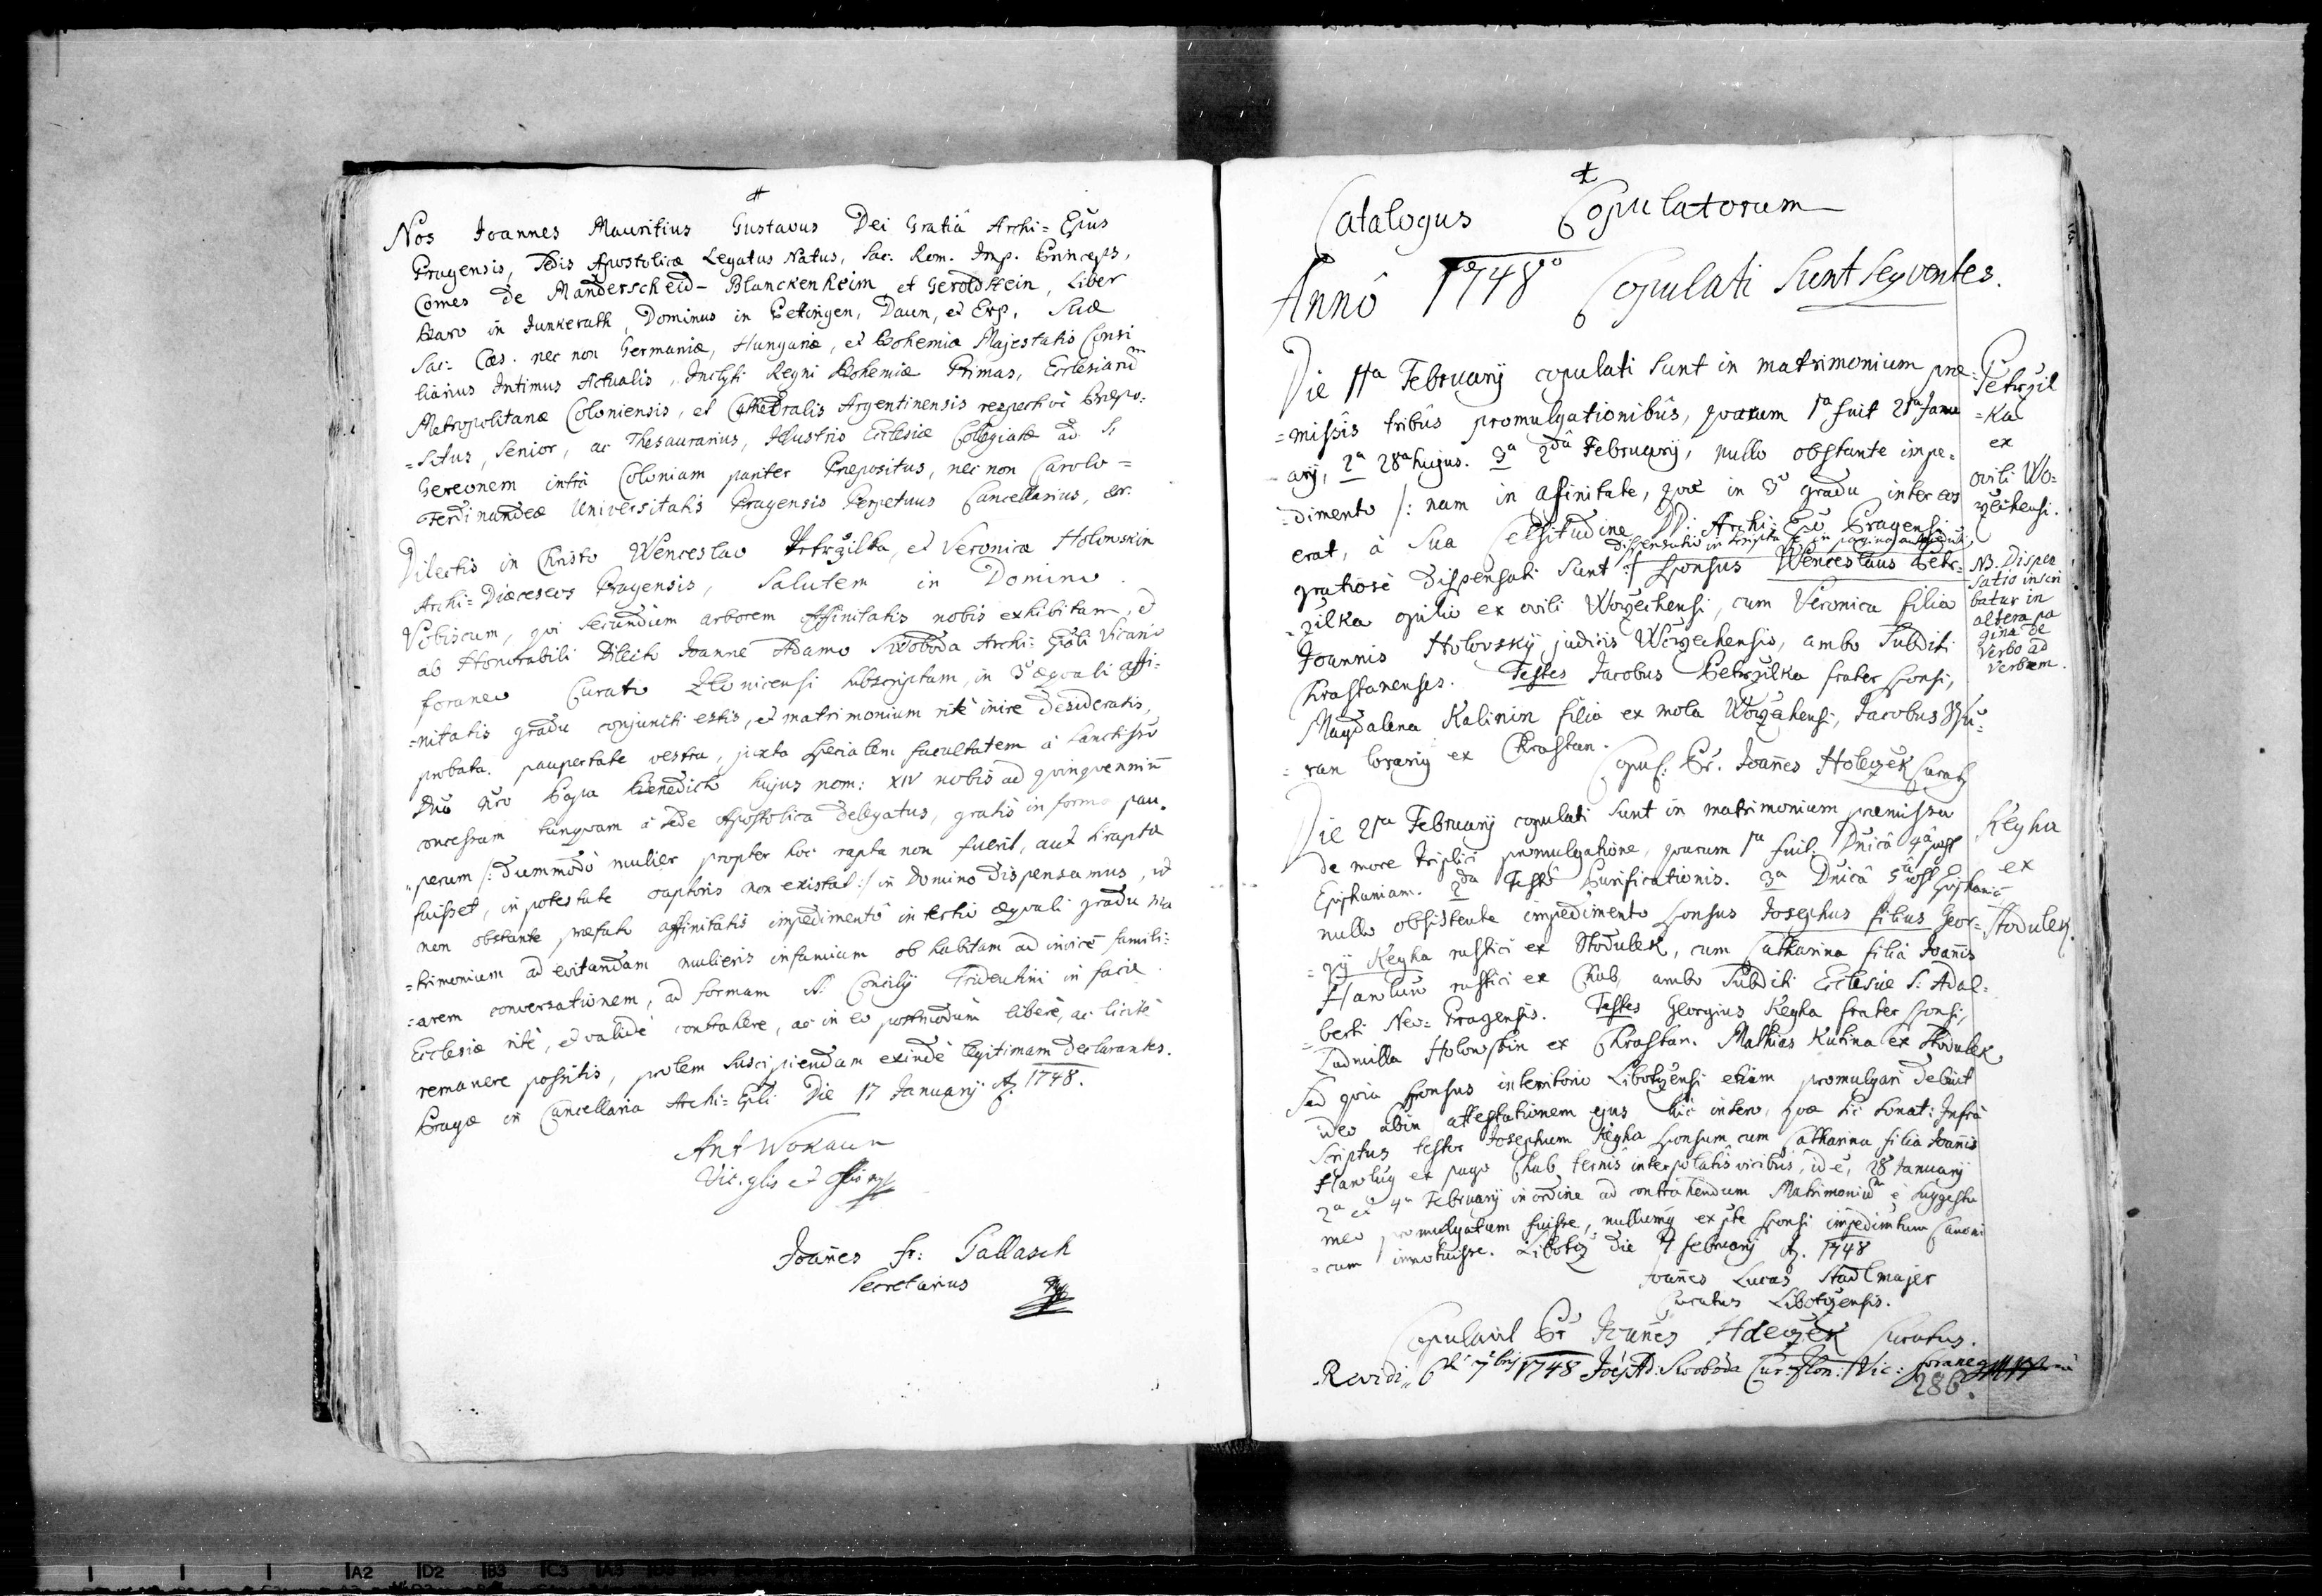 Nos Joannes Mauritius Gustavus Dei Gratiâ Archi= Epũs
Pragensis, Sedis Apostolicæ Legatus Natus, Sac: Rom. Imp. Princeps,
Comes de Manderscheid- Blanckenheim et Geroldstein, Liber
Baro in Junkerath, Dominus in Bettingen, Daun, et Erp. Suæ
Sac- Cæs. nec non Germaniæ, Hungariæ, et Bohemiæ Majestatis Consi
liarius Intimus Actualis, Inclyti Regni Bohemiæ Primas, Ecclesiarum
Metropolitanæ Coloniensis, et Cathedralis Argentinensis respectivè Præpo=
=situs, Senior, ac Thesaurarius, Illustris Ecclesiæ Collegiatæ ad S:
Gereonem intra Coloniam pariter Præpositus, nec non Carolo=
Ferdinandeæ Universitatis Pragensis Perpetuus Cancellarius, &c:
Dilectis in Christo Wenceslao Petrzilka, et Veronica Holowskin
Archi= Diæceseos Pragensis, Salutem in Domino.
Vobiscum, qvi secundum arborem Affinitatis nobis exhibitam, et
ab Honorabili Dilecto Joanne Adamo Swoboda Archi= Epõli Vicario
foraneo Curato Zlonicensi subscriptam, in 3º æqvali affi=
=nitatis gradu conjuncti estis, et matrimonium ritè inire desideratis,
probata paupertate vestra, juxta specialem facultatem à Sanctissõ
Dnõ Nrõ Papa Benedicto hujus nom: XIV nobis ad qvinqvenniũ
concessam tanqvam à sede Apostolica delegatus, gratis in forma pau=
"perum /: dummodò mulier propter hoc rapta non fuerit, aut si rapta
fuisset, in potestate raptoris non existat :/ in Domino dispensamus, ut
non obstante præfato affinitatis impedimentô in tertio æqvali gradu ma
=trimonium ad evitandam mulieris infamiam ob habitam ad invicẽ famili=
=arem conversationem, ad formam S: Concilij Tridentini in facie
Ecclesiæ ritè, et validè contrahere, ac in eo postmodùm liberè, ac licitè
remanere possitis, prolem suscipiendam exindè legitimam declarantes.
Pragæ in Cancellaria Archi= Epli Die 17 Januarij Aõ. 1748.
Ant Wokaun
Vic. glis et Offlis
Joañes Fr: Gallasch
Secretarius
Catalogus Copulatorum
Annô 1748º Copulati Sunt Seqventes.
Die 11ª Februarij copulati sunt in matrimonium præ=
=missis tribûs promulgationibûs, qvarum 1ª fuit 21ª Janu
arij, 2ª 28ª hujus. 3ª 2dâ Februarij, nullo obstante impe=
=dimento /: nam in afinitate, qvæ in 3º gradu inter eos
erat, à Sua Celsitudine DD: Archi= Epõ Pragensi
dispensatio inscripta è in pagina
gratiosè dispensati sunt :/ Sponsus Wenceslaus Petr=
=zilka opilio ex ovili Worzechensi, cum Veronica filia
Joannis Holovsky judicis Worzechensis, ambo Subditi
Chrastanenses. Testes Jacobus Petrzilka frater sponsi,
Magdalena Kalinin filia ex mola Worzechensi, Jacobus
ex Chrastan.
Copul: Pr. Joañes Holeczek Curatus
Petrzil
=ka
ex
ovili Wo=
rzechensi.
NB. Dispen
satio inscri
batur in
altera pa
gina de
verbo ad
verbum.
Die 21ª Februarij copulati sunt in matrimonium præmissa
de more triplici promulgatione, qvarum 1ª fuit. Dnicâ 4ª post
Epiphaniam. 2da Festô Purificationis. 3ª Dnicâ 5tâ post Epiphaniã
nullo obsistente impedimento sponsus Josephus filius Geor=
=gij Keyha rustici ex Stodulek, cum Catharina filia Joañis
Hawlow rustici ex Chab, ambo Subditi Ecclesiæ S: Adal=
=berti Neo= Pragensis. Testes Georgius Keyha frater sponsi,
Ludmilla Holowskin ex Chrastan. Mathias Kutina ex Stodulek
Sed qvia sponsus in territorio Libotzensi etiam promulgari debuit
ideo abin attestationem ejus hic insero, qvæ sic sonat: Infrà
Scriptus testor Josephum Keyha sponsum cum Catharina filia Joañis
Hawluy ex pago Chab ternis interpolatis vicibus, id ẽ, 28 Januarij
2ª et 4ª Februarij in ordine ad contrahendum Matrimoniũ è suggestu
meo promulgatum fuisse, nullumq ex pte sponsi impedimtum Canoni
=cum innotuisse. Libotz die 7 february Aõ. 1748
Joañes Lucas Stadlmajer
Curatus Libotzensis.
Copulavit Pr Joañes Holeczek Curatus.
Revidi 6ta 7bris 1748 Joẽs Ad: Swoboda Cur: Zlon: Vic: foraneq
286.
Keyha
ex
Stodulek.